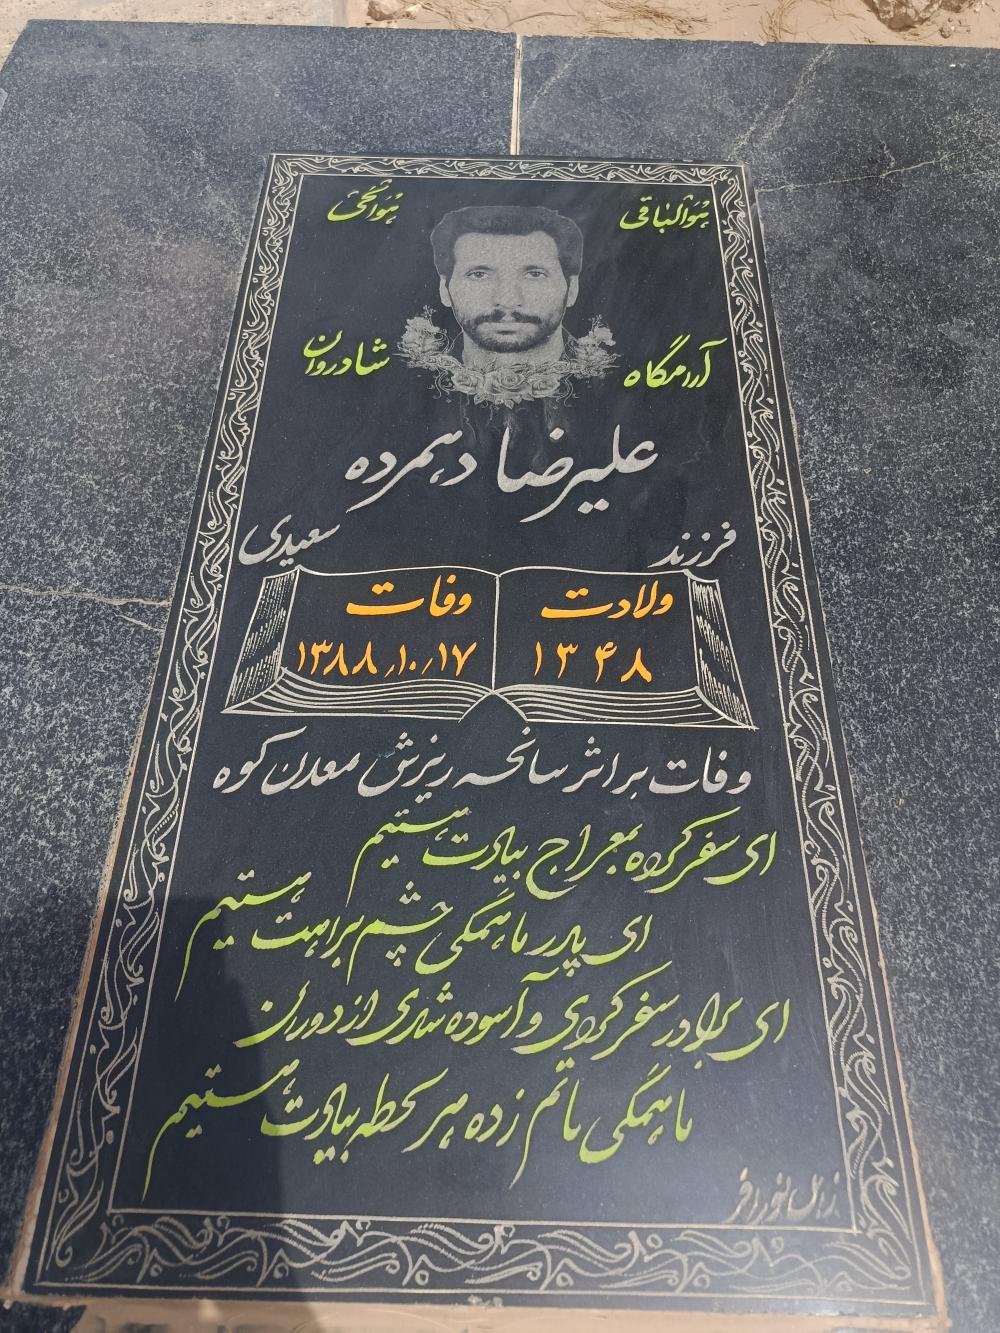 هوالباقی هوالحی
آرامگاه شادروان
علیرضا دهمرده
فرزند سعیدی
ولادت وفات
۱۳۴۸ ۱۳۸۸,۱۰,۱۷
وفات بر اثر سانحه ریزش معدن کوه
ای سفر کرده بمعراج بیادت هستیم
ای پدر ما همگی چشم براهت هستیم
ای برادر سفر کردی و آسوده شدی از دوران
ما همگی ماتم زده هر لحظه بیادت هستیم
زابل